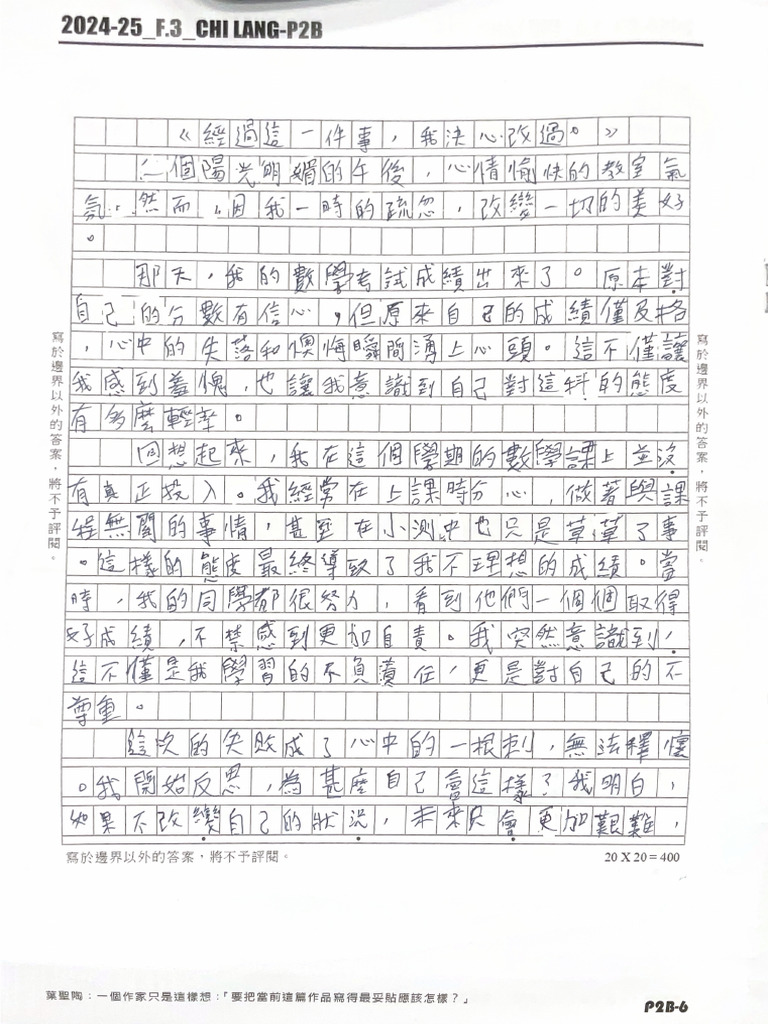 2024-25_F.3_CHI LANG-P2B
《經過這一件事，我決心改過。》
一個陽光明媚的午後，心情愉快的教室氣
氛。然而，因我一時的疏忽，改變一切的美好
。
那天，我的數學考試成績出來了。原本對
自己的分數有信心，但原來自己的成績僅及格
，心中的失落和懊悔瞬間湧上心頭。這不僅讓
我感到羞愧，也讓我意識到自己對這科的態度
有多麼輕率。
回想起來，我在這個學期的數學課上並沒
有真正投入。我經常在上課時分心，做著與課
程無關的事情，甚至在小測中也只是草草了事
。這樣的態度最終導致了我不理想的成績。當
時，我的同學都很努力，看到他們一個個取得
好成績，不禁感到更加自責。我突然意識到，
這不僅是我學習的不負責任，更是對自己的不
尊重。
這次的失敗成了心中的一根刺，無法釋懷
。我開始反思，為甚麼自己會這樣？我明白，
如果不改變自己的狀況，未來只會更加艱難，
寫於邊界以外的答案，將不予評閱。
寫於邊界以外的答案，將不予評閱。
寫於邊界以外的答案，將不予評閱。
20 X 20 = 400
葉聖陶：一個作家只是這樣想：「要把當前這篇作品寫得最妥貼應該怎樣？」
P2B-6